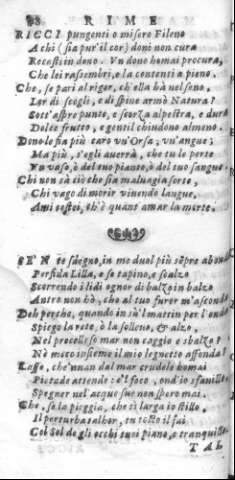 88. RIME
RICCI pungenti o misero Fileno
A chi (sia pur'il cor) doni non cura
Recasti in dono. Vn dono homai procura,
Che lei rassembri, e la contenti a pieno.
Che, se pari al rigor, ch'ella hà nel seno,
Lor di scogli, e di spine armò Natura?
Sott'aspre punte, e scorza alpestra, e dura
Dolce frutto, e gentil chiudono almeno.
Donole fia più caro vn'Orsa, vn'angue;
Ma più, s'egli auerrà, che tu le porte
Vn vaso, ò del tuo pianto, ò del tuo sangue
Chi non sà ciò che sia maluagia sorte,
Chi vago di morir viuendo langue,
Ami costei, ch'è quant'amar la morte.
SE'N te sdegno, in me duol più sẽpre abonda
Perfida Lilla, e se tapino, e scalzo
Scorrendo i lidi ognor di balzo in balzo
Antro non hò, che al tuo furor m'asconda
Deh perche, quando in sù'l mattin per l'onda
Spiego la rete, ò la solleuo, & alzo,
Nel procelloso mar non caggio e sbalzo?
Nè meco insieme il mio legnetto affonda?
Lasso, che'nuan dal mar crudele homai
Pietade attendo: e'l foco, ond'io sfauillo
Spegner nel'acque sue non spero mai.
Che, se la pioggia, che sì larga io stillo,
Il perturba talhor, tu tosto il fai
Col Sol de gli occhi tuoi piano, e tranquillo.
TAL